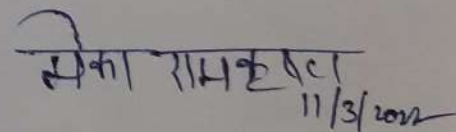 मेका रामकृष्ण
11/3/2022